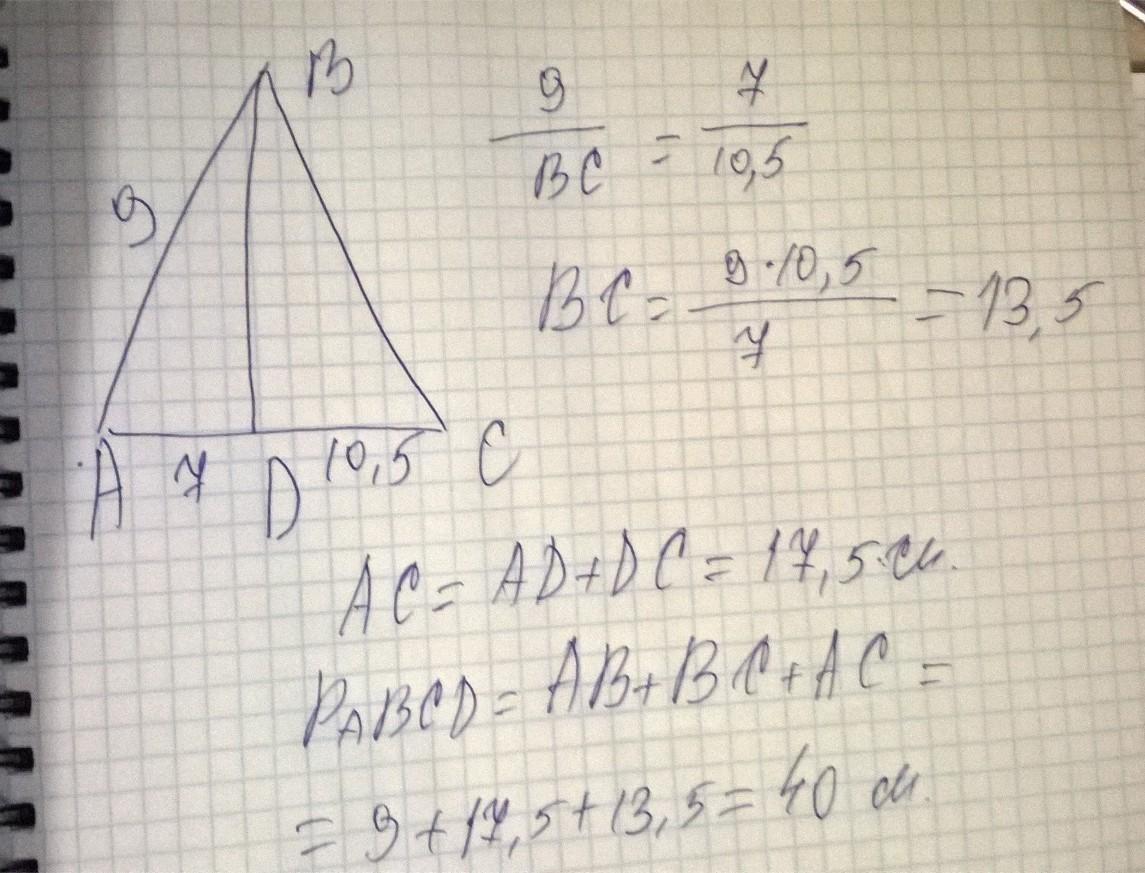 B
9
A 7 D 10,5 C
9/BC = 7/10,5
BC = 9·10,5/7 = 13,5
AC = AD+DC = 17,5 см.
PABCD = AB+BC+AC =
= 9+17,5+13,5 = 40 см.